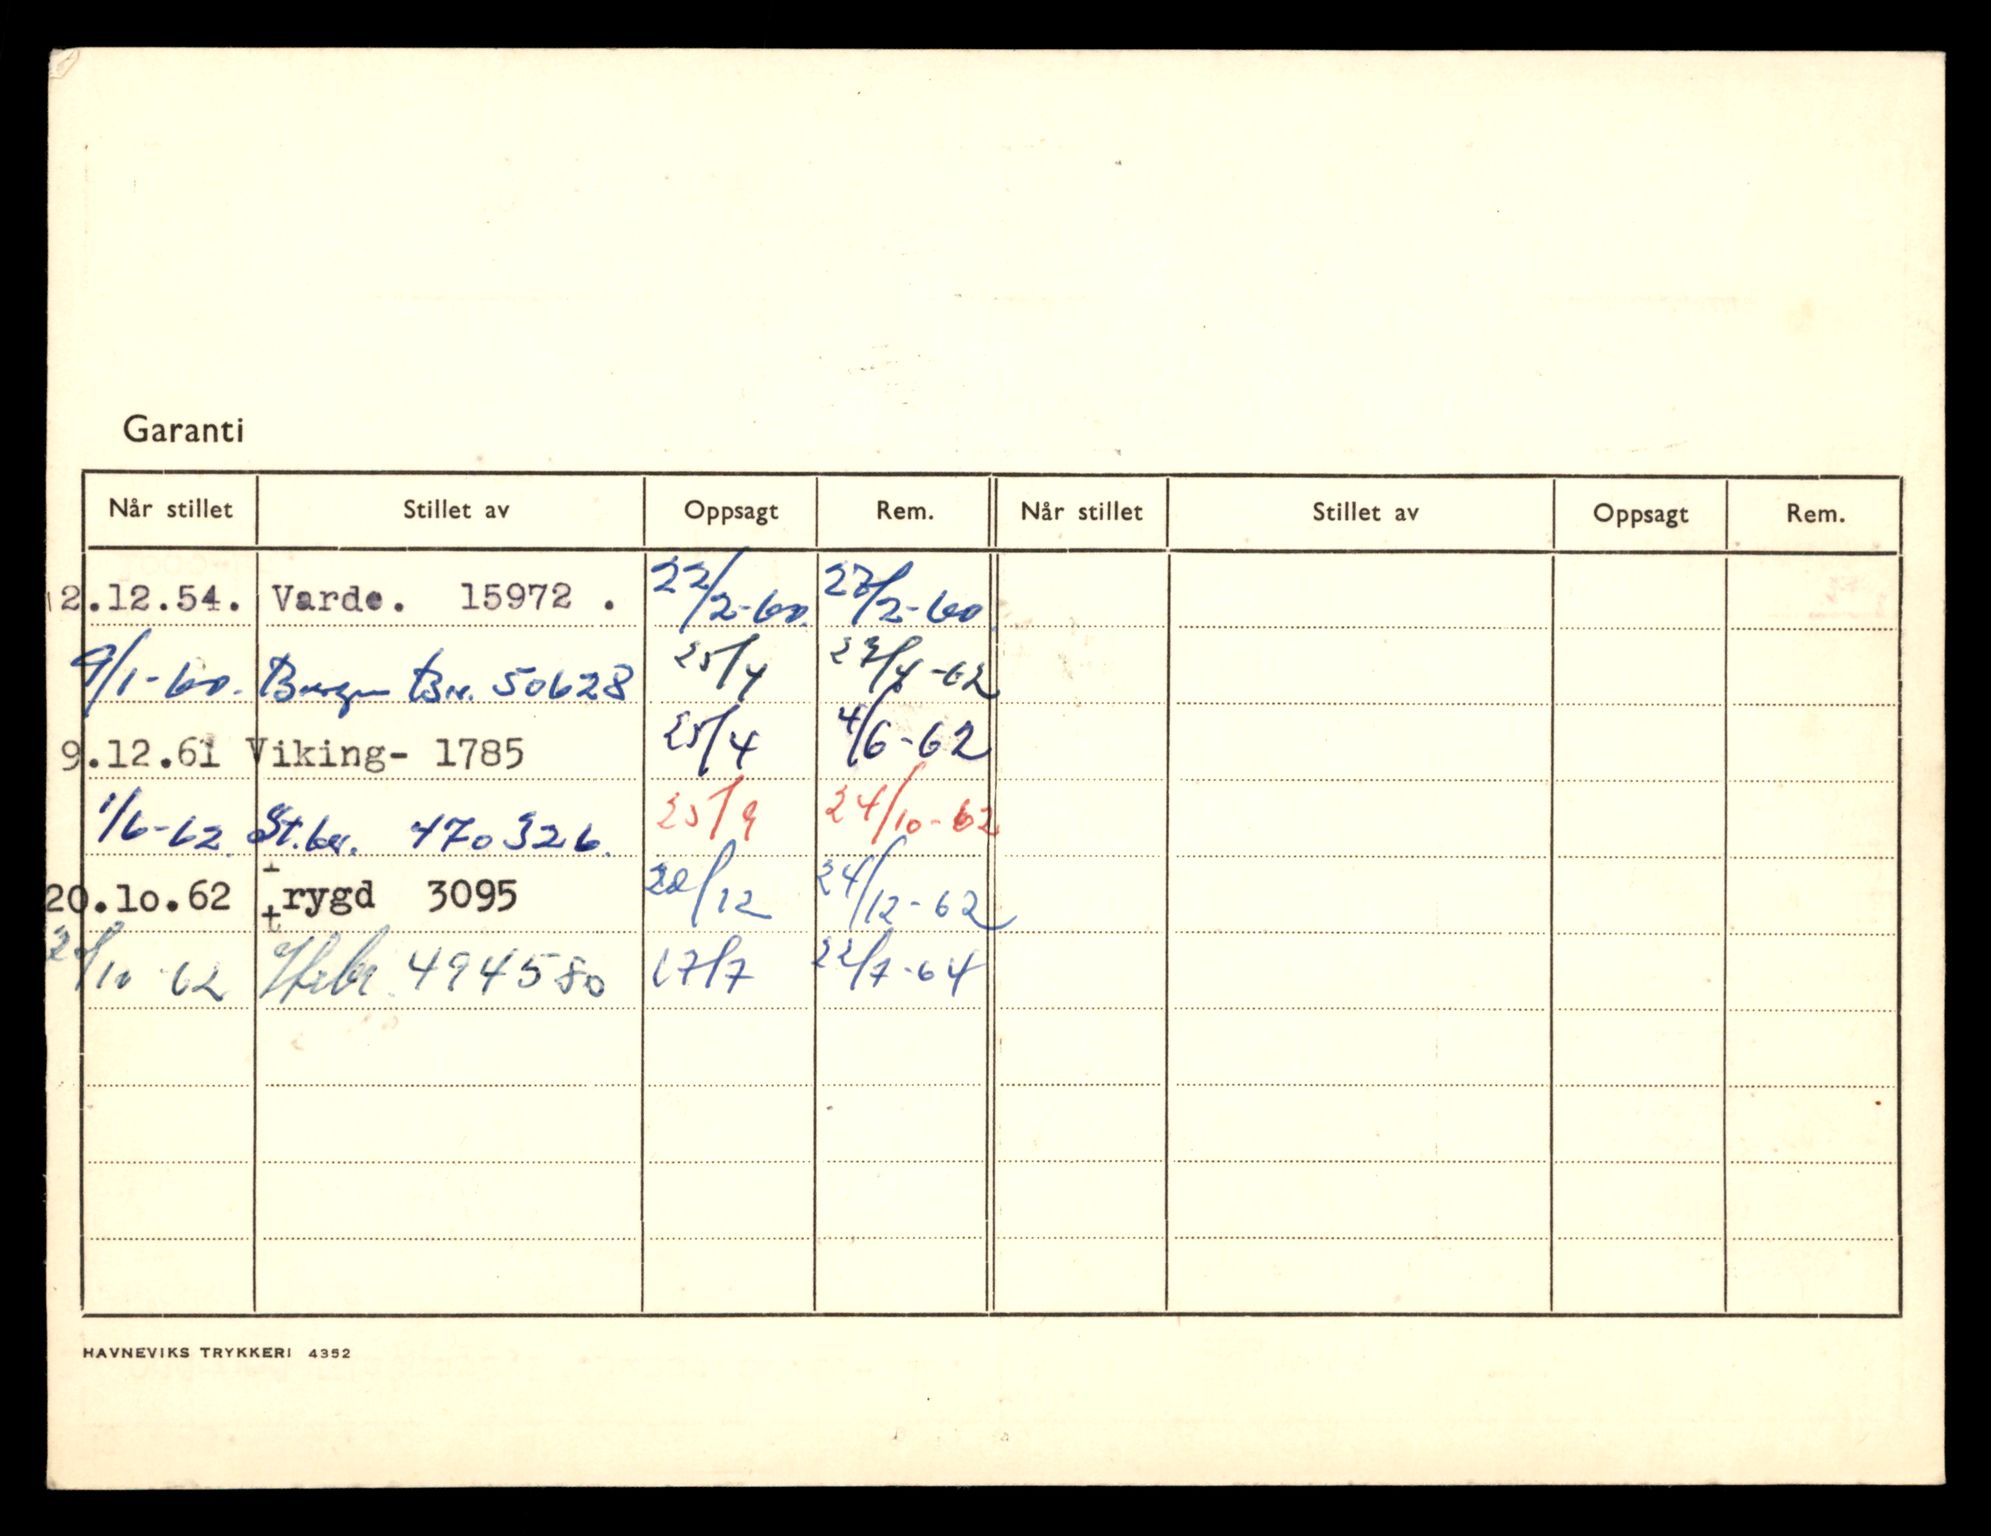 Garanti
Når stillet Stillet av Oppsagt Rem. Når stillet Stillet av Oppsagt Rem.
12.12.54. Varde. 15972 . 22/2-60. 27/2-60.
9/1-60. Bergen Br. 50628 25/4 27/4-62
9.12.61 Viking- 1785 25/4 4/6-62
1/6-62. St.br. 470326. 25/9 24/10-62
20.10.62 trygd 3095 20/12 24/12-62
/10-62 494580 17/7 22/7-64
HAVNEVIKS TRYKKERI 4352